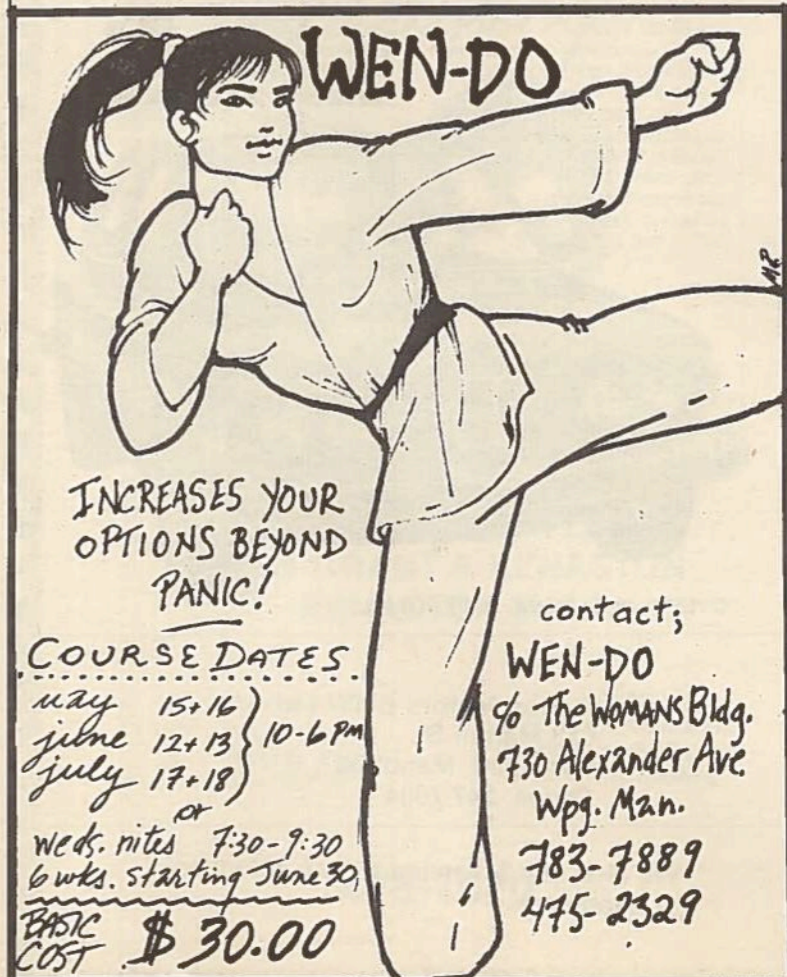 WEN-DO
MR
INCREASES YOUR
OPTIONS BEYOND
PANIC!
COURSE DATES
may 15+16
june 12+13 } 10-6 PM
july 17+18
or
weds. nites 7:30-9:30
6 wks. starting June 30,
BASIC
COST $30.00
contact;
WEN-DO
c/o The WOMANS Bldg.
730 Alexander Ave.
Wpg. Man.
783-7889
475-2329